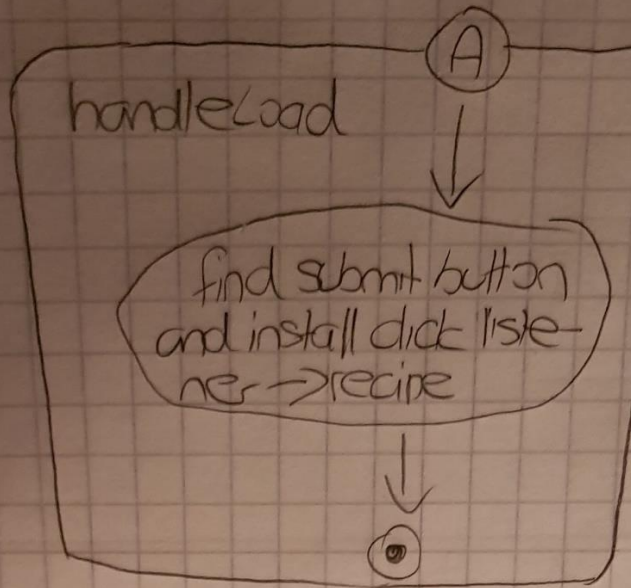 A
handleLoad
find submit button
and install click liste-
ner->recipe